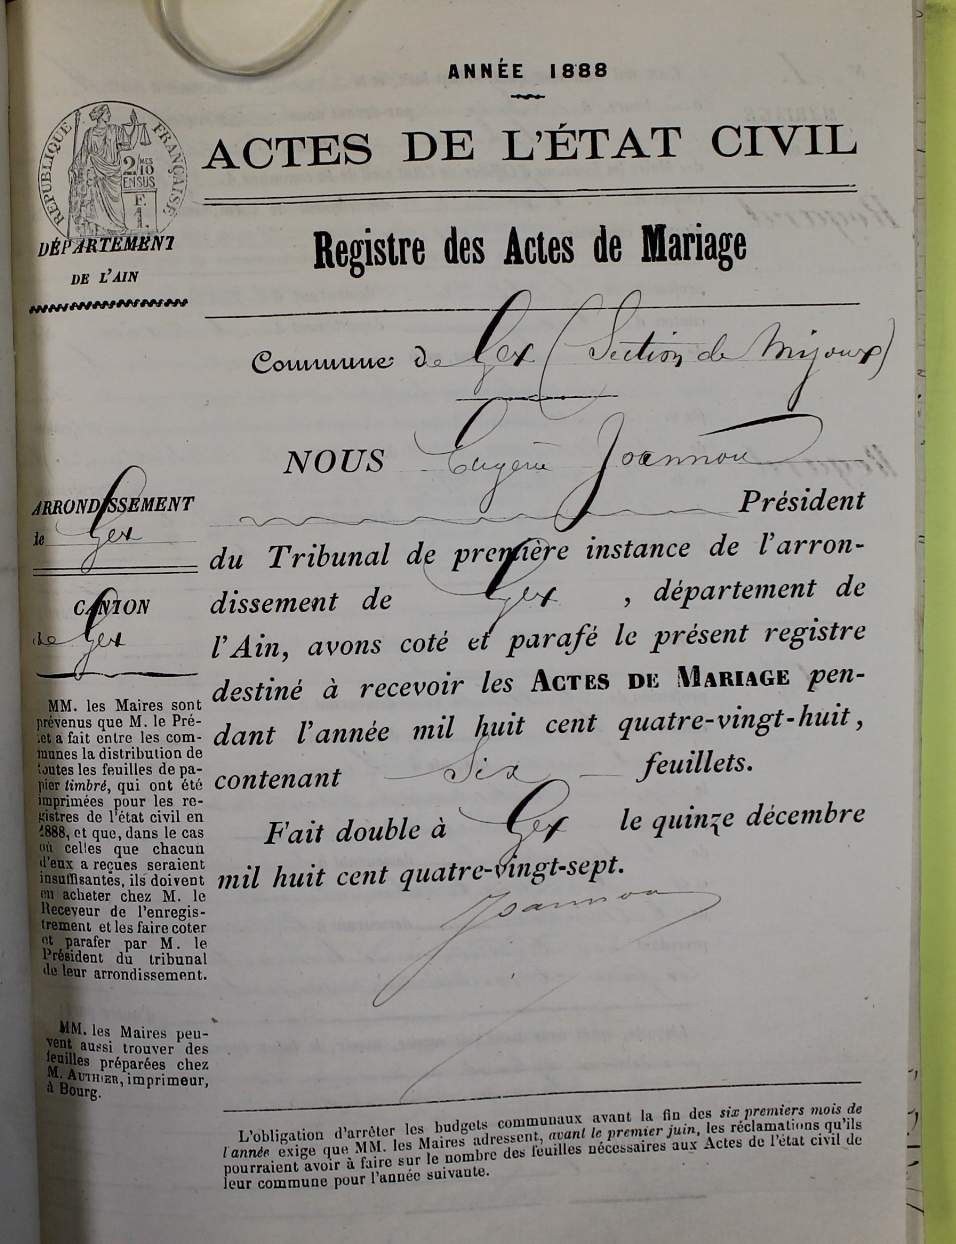 ANNÉE 1888
ACTES DE L'ÉTAT CIVIL
RÉPUBLIQUE FRANÇAISE
2/10 MES
EN SUS
E.
1.
DÉPARTEMENT
DE L'AIN
Registre des Actes de Mariage
Commune de Gex (Section de Mijoux)
NOUS Eugène Joannon
Président
du Tribunal de première instance de l'arron-
dissement de Gex, département de
l'Ain, avons coté et parafé le présent registre
destiné à recevoir les ACTES DE MARIAGE pen-
dant l'année mil huit cent quatre-vingt-huit,
contenant Six feuillets.
Fait double à Gex le quinze décembre
mil huit cent quatre-vingt-sept.
Joannon
ARRONDISSEMENT
de Gex
CANTON
de Gex
MM. les Maires sont
prévenus que M. le Pré-
et a fait entre les com-
munes la distribution de
toutes les feuilles de pa-
pier timbré, qui ont été
imprimées pour les re-
gistres de l'état civil en
1888, et que, dans le cas
où celles que chacun
d'eux a reçues seraient
insuffisantes, ils doivent
en acheter chez M. le
Receveur de l'enregis-
trement et les faire coter
et parafer par M. le
Président du tribunal
de leur arrondissement.
MM. les Maires peu-
vent aussi trouver des
feuilles préparées chez
M. AUTHIER, imprimeur,
à Bourg.
L'obligation d'arrêter les budgets communaux avant la fin des six premiers mois de
l'année exige que MM. les Maires adressent, avant le premier juin, les réclamations qu'ils
pourraient avoir à faire sur le nombre des feuilles nécessaires aux Actes de l'état civil de
leur commune pour l'année suivante.